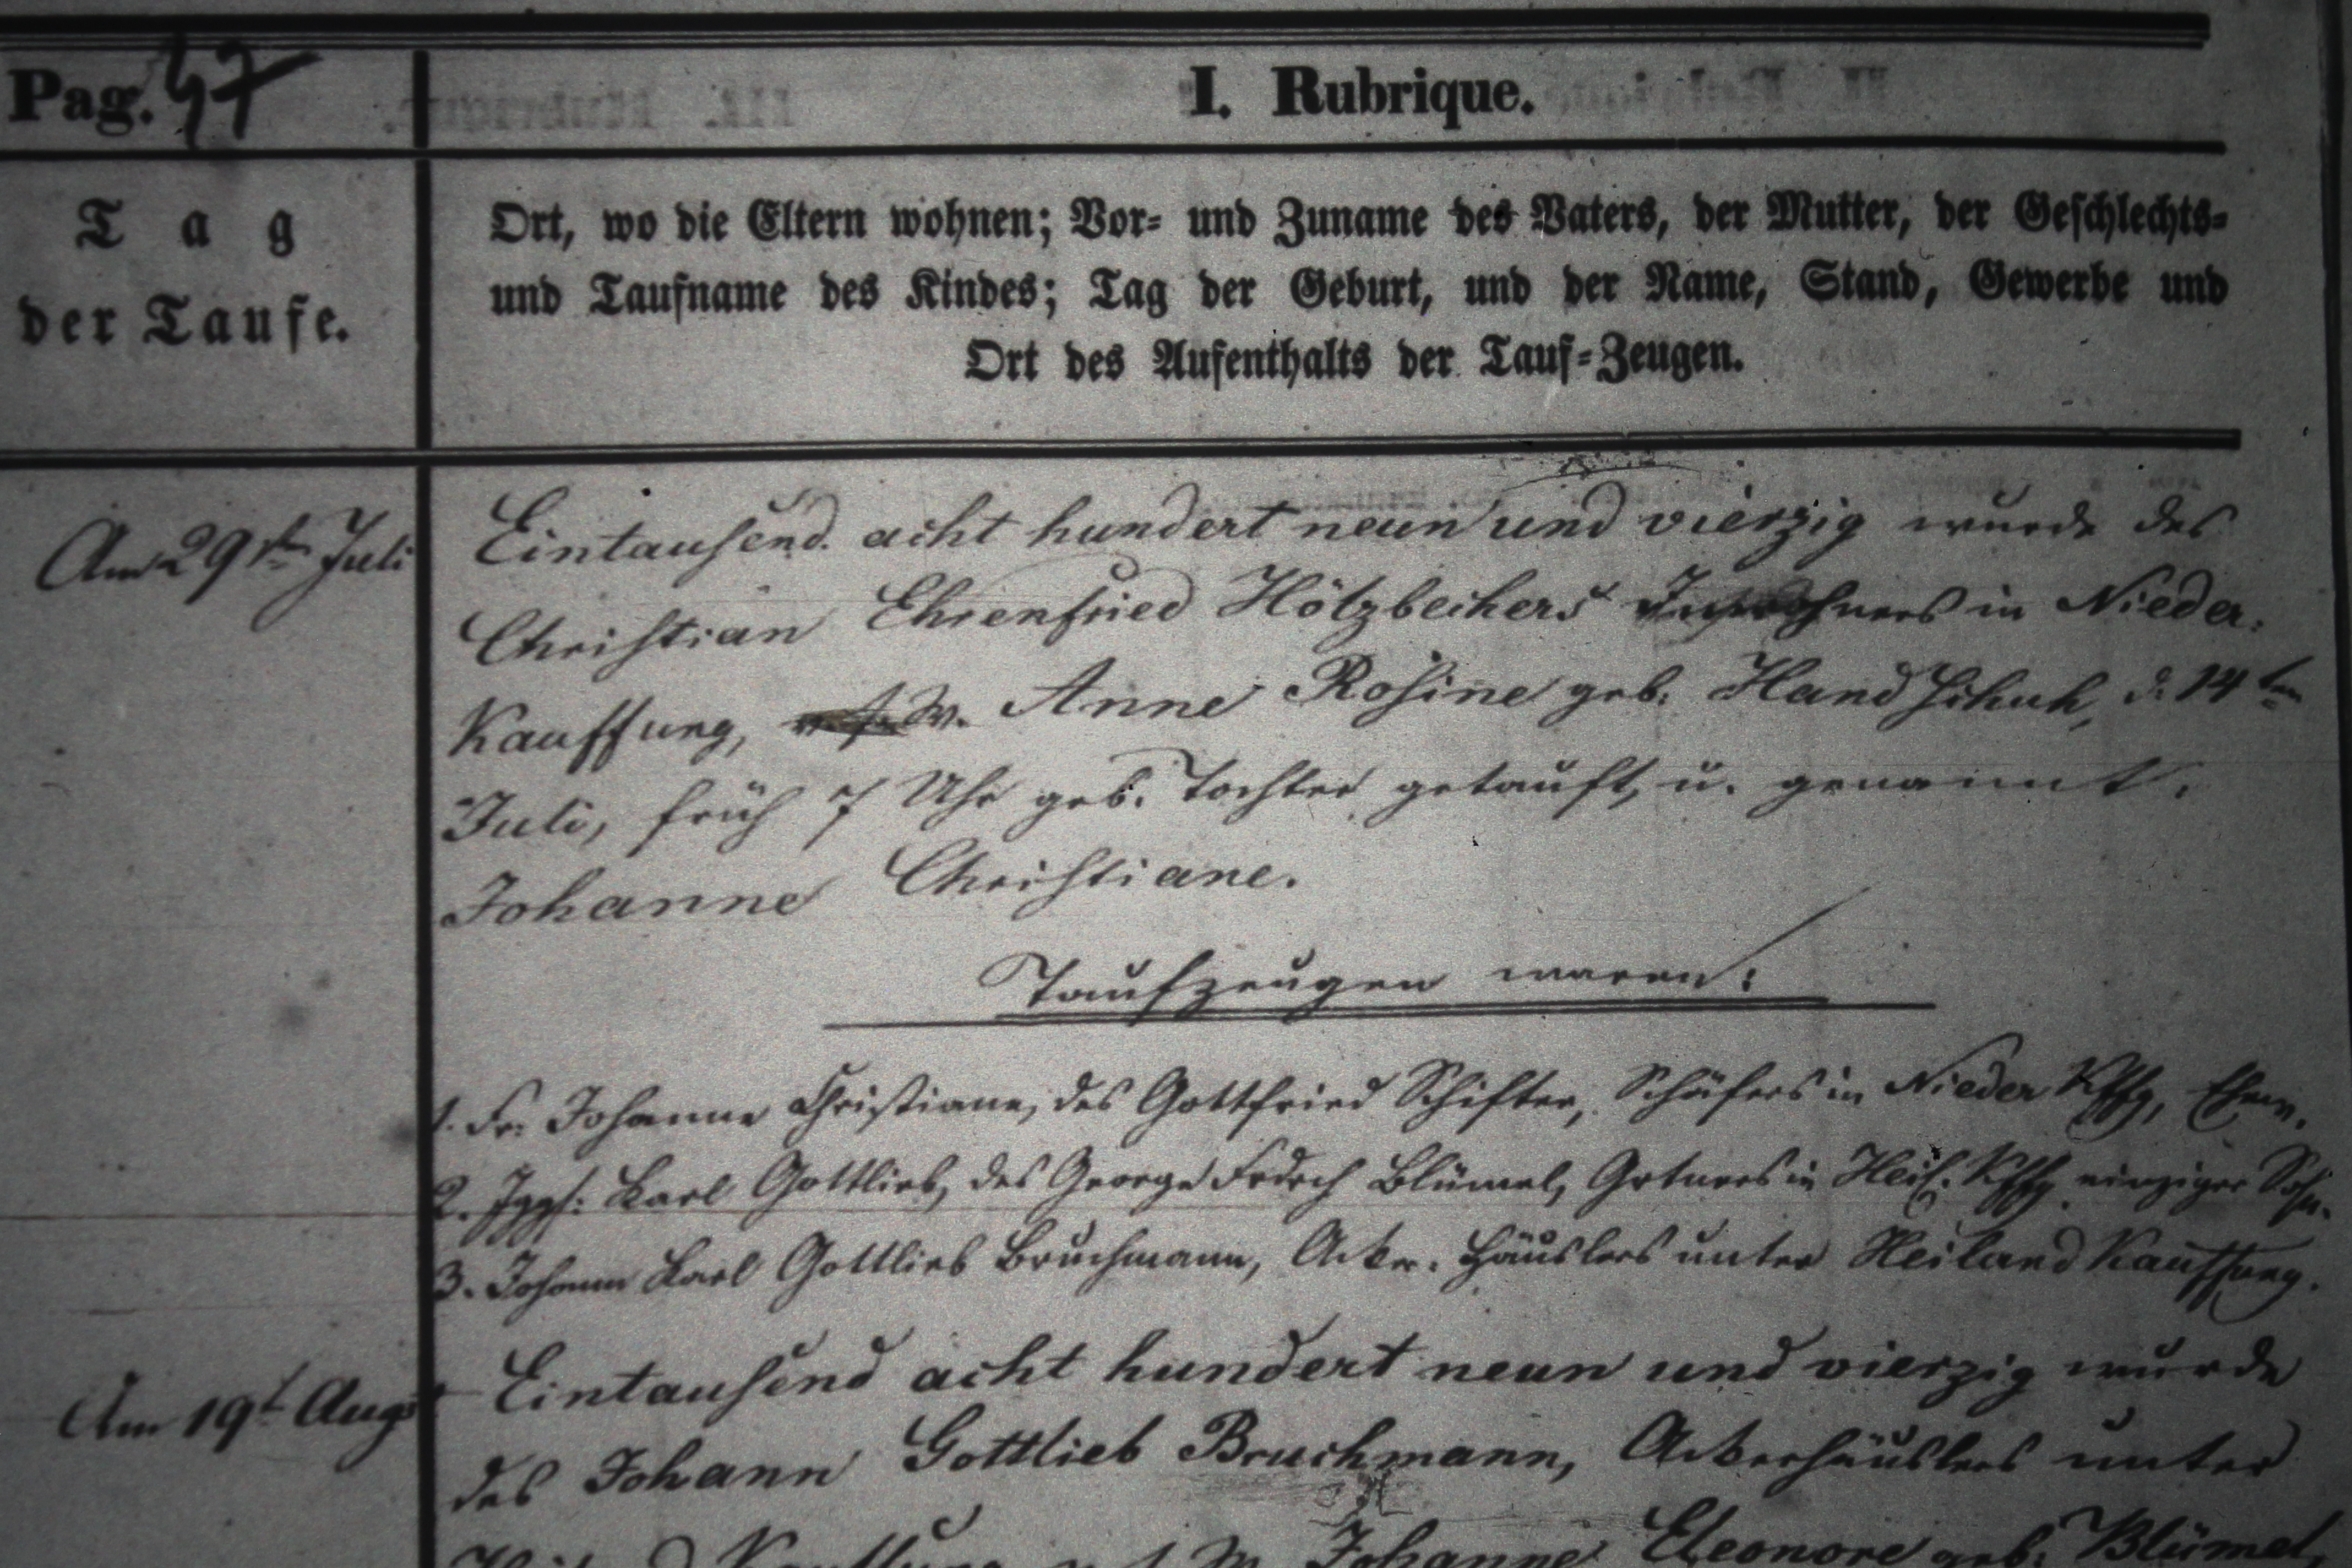 Pag. 47
I. Rubrique.
Tag
der Taufe.
Ort, wo die Eltern wohnen; Vor- und Zuname des Vaters, der Mutter, der Geschlechts-
und Taufname des Kindes; Tag der Geburt, und der Name, Stand, Gewerbe und
Ort des Aufenthalts der Tauf-Zeugen.
Am 29st Juli
Eintausend acht hundert neun und vierzig wurde des
Christian Ehrenfried Hölzbechers Inwohners in Nieder-
Kauffung, W. Anne Rosine geb. Handschuh, d. 14ten
Juli, früh 7 Uhr geb. Tochter getauft, u. genannt:
Johanne Christiane.
Taufzeugen waren:
1. Fr: Johanne Christiane, des Gottfried Schifter, Schäfers in Nieder Kffg, Ehew.
2. Jggs: Karl Gottlieb, des George Frdrch Blümel, Grtners in Heil. Kffg einziger Sohn.
3. Johann Karl Gottlieb Bruchmann, Acker-Häuslers unter Heiland Kauffung.
Am 19t Augst
Eintausend acht hundert neun und vierzig wurde
des Johann Gottlieb Bruchmann, Ackerhäuslers unter
Heiland Kauffung Johanne Eleonore geb. Blümel